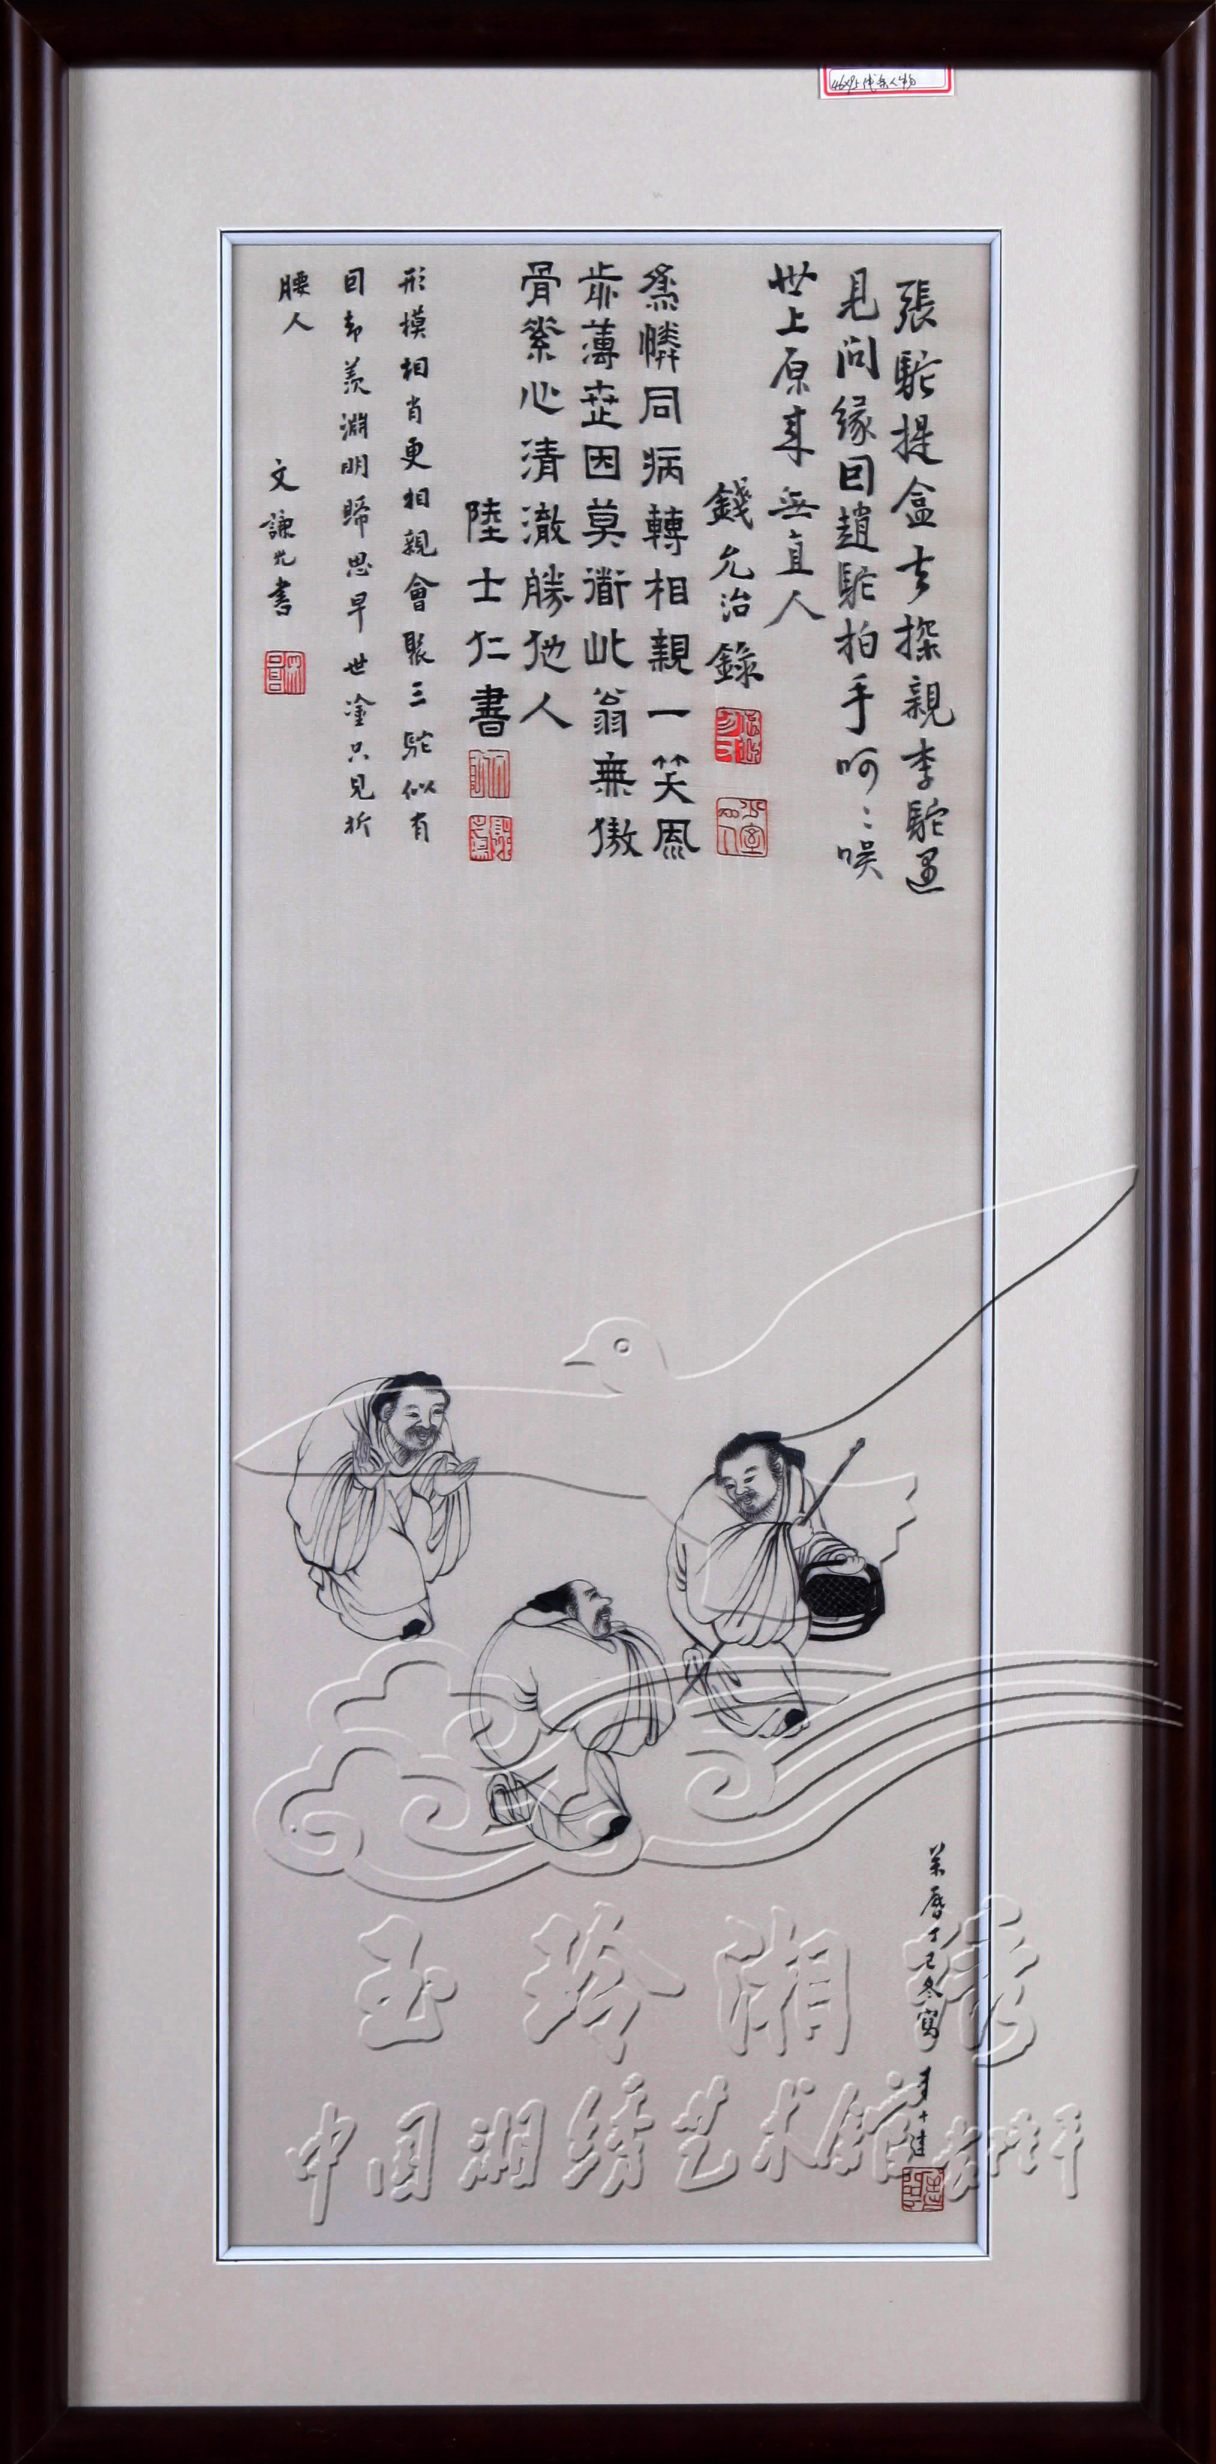 張駝提盒去探親李駝遇
見问緣回趙駝拍手呵〻唉
世上原来無直人
錢允治錄
為憐同病轉相親一笑風
前薄世因莫道此翁無傲
骨縈心清澈勝他人
陸士仁書
形模相肖更相親會聚三駝似有
因却羨淵明歸思早世塗只見折
腰人
文謙光書
萬曆丁巳冬寫
玉玲湘绣
中国湘绣艺术馆